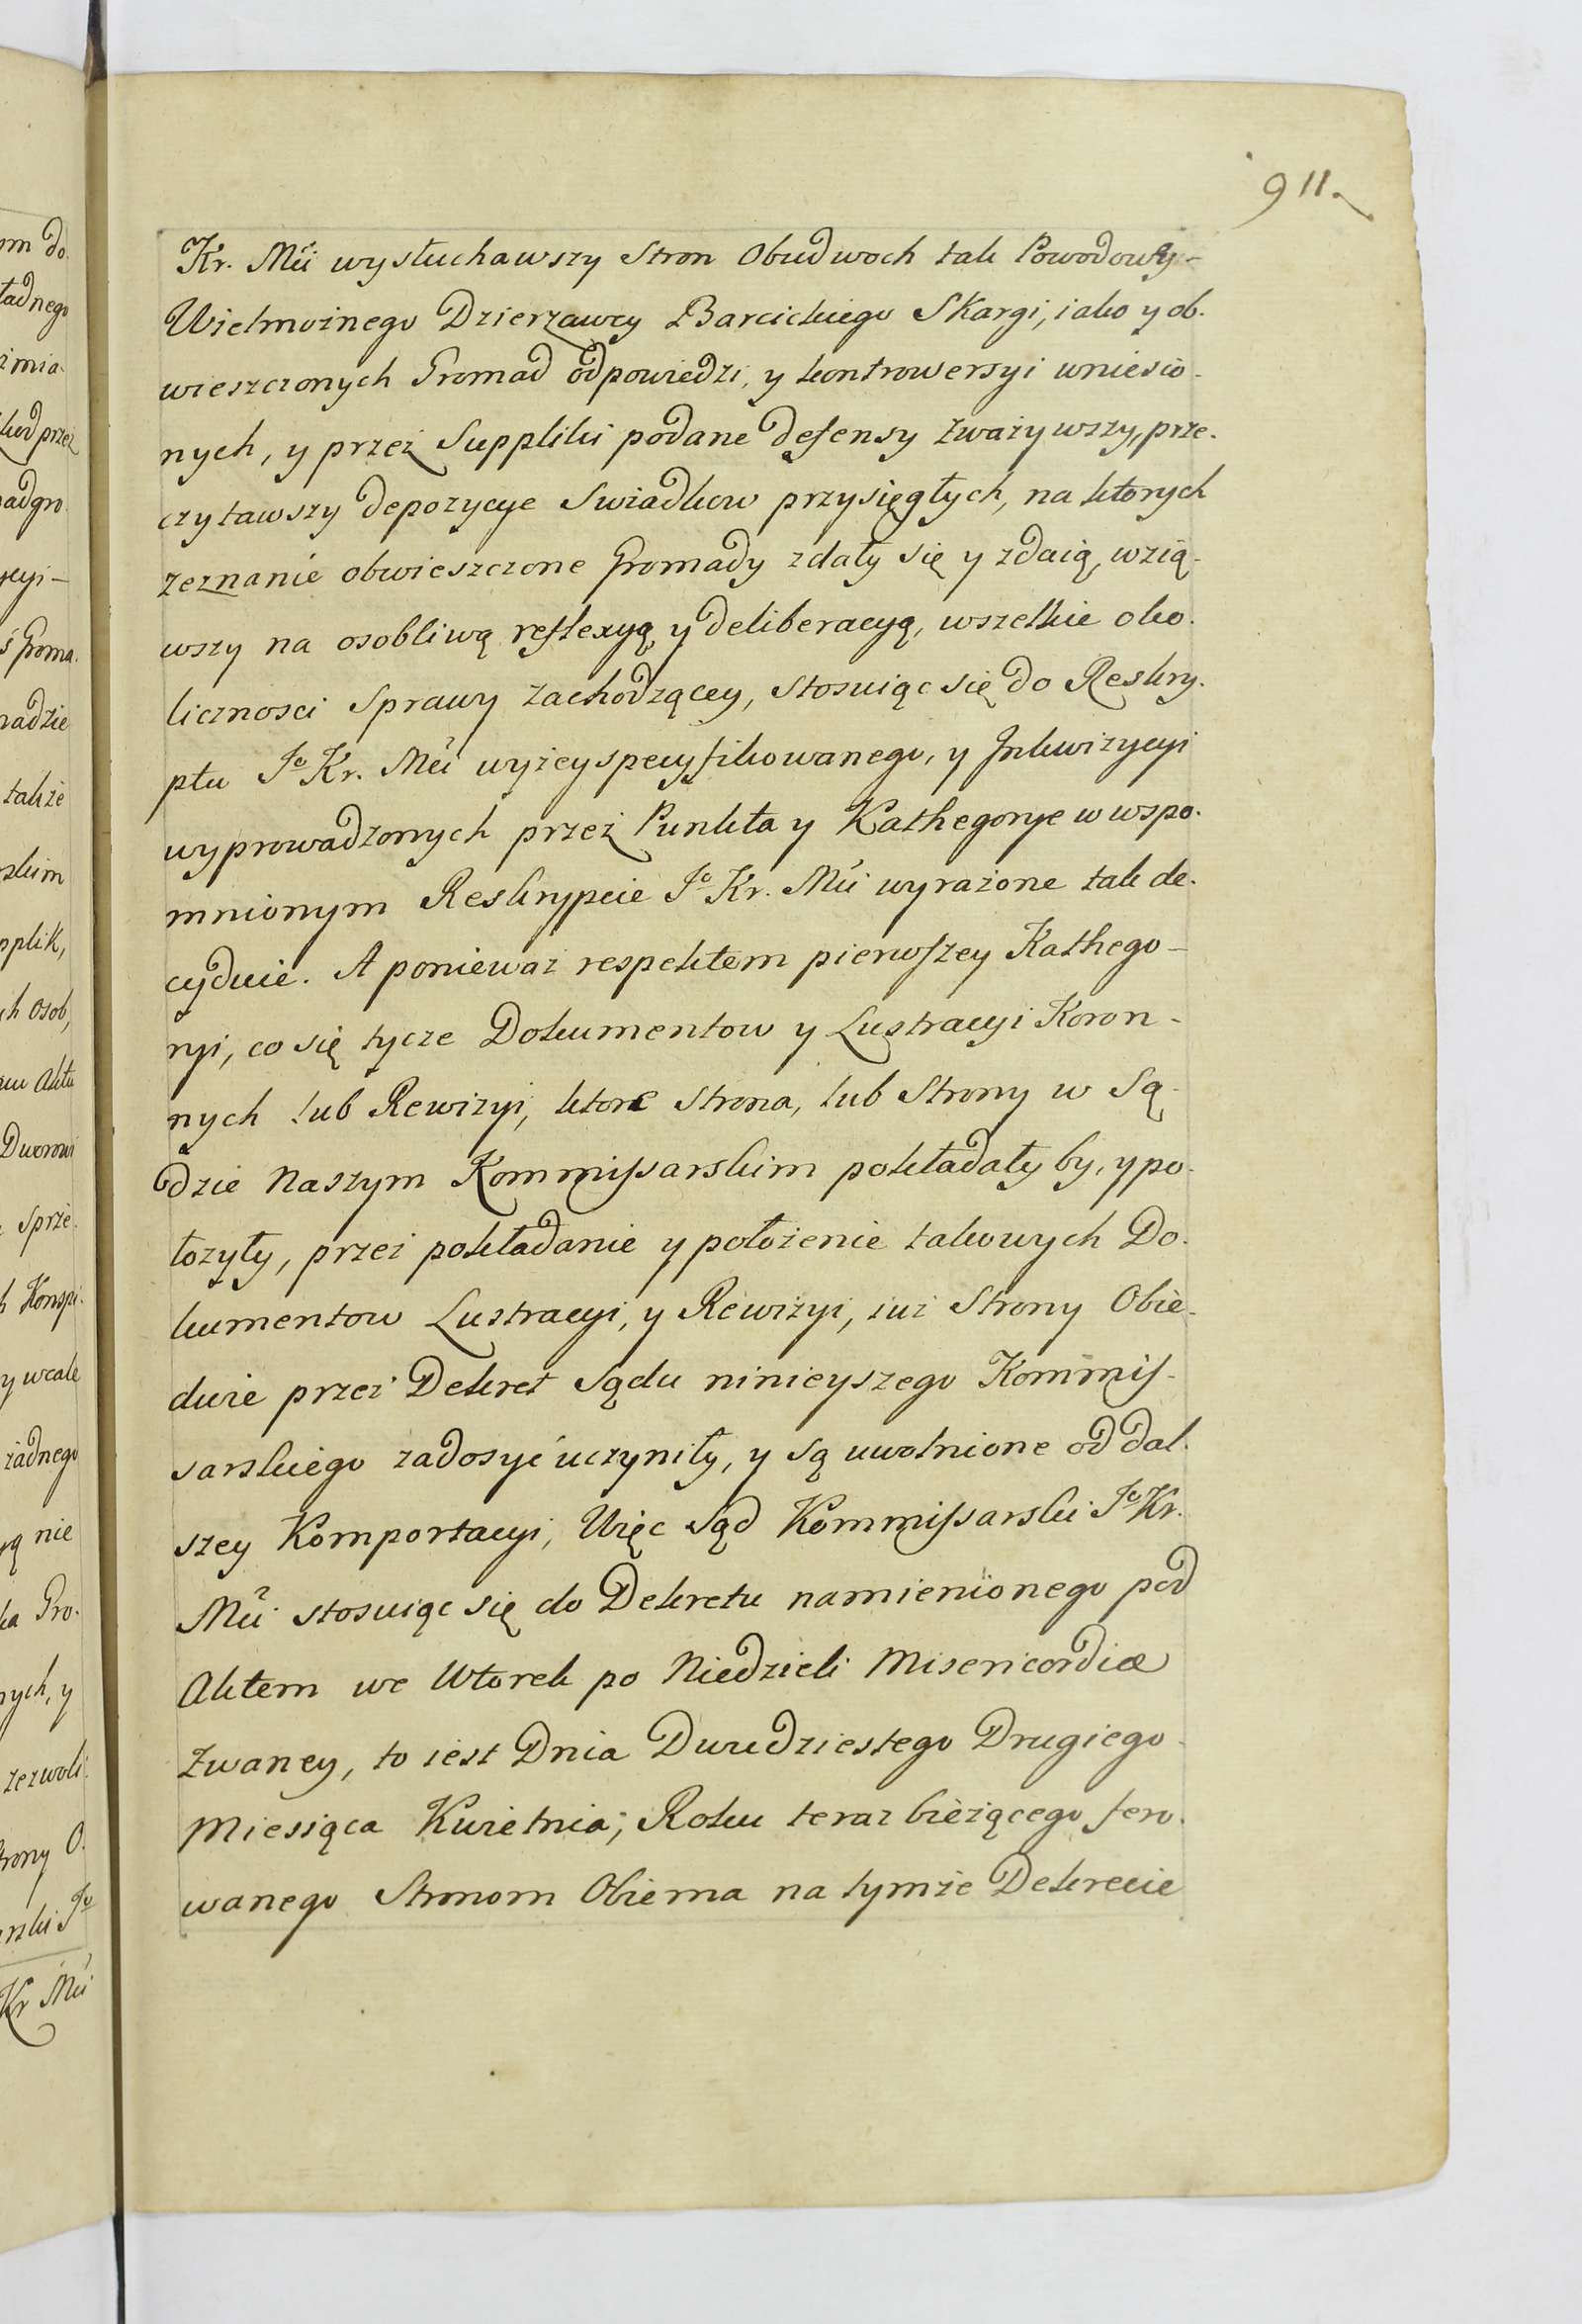 911.
Kr. Mći wysłuchawszy Stron Obudwoch tak Powodowey-
Wielmożnego Dzierzawcy Barcickiego Skargi, iako y ob-
wieszczonych Gromad odpowiedzi, y kontrowersyi wniesio-
nych, y przeż Suppliki podane defensy zważywszy, prze-
czytawszy depozycye Swiadkow przysięgłych, na ktorych
zeznanie obwieszczone Gromady zdały się y zdaią, wzią-
wszy na osobliwą reflexyą y deliberacyą, wszelkie oko-
licznosci Sprawy zachodzącey, stosuiąc się do Reskry-
ptu Jo Kr. Mći wyżey specyfikowanego, y Inkwizycyi
wyprowadzonych przeż Punkta y Kathegorye w wspo-
mnionym Reskrypcie Jo Kr. Mći wyrażone tak de-
cyduie. A ponieważ respektem pierwszey Kathego-
ryi, co się tycze Dokumentow y Lustracyi Koron-
nych lub Rewizyi, ktore Strona, lub Strony w Są-
dzie Naszym Kommissarskim pokładały by, y po-
łozyły, przez pokładanie y położenie takowych Do-
kumentow Lustracyi, y Rewizyi, iuż Strony Obie-
dwie przez Dekret Sądu ninieyszego Kommis-
sarskiego zadosyć uczyniły, y są uwolnione od dal-
szey Komportacyi, Więc Sąd Kommissarski Jo Kr.
Mći stosuiąc się do Dekretu namienionego pod
Aktem we Wtorek po Niedzieli Misericordiæ
Zwaney, to iest Dnia Dwudziestego Drugiego
Miesiąca Kwietnia; Roku teraz bieżącego fero-
wanego Stronom Obiema na tymże Dekrecie